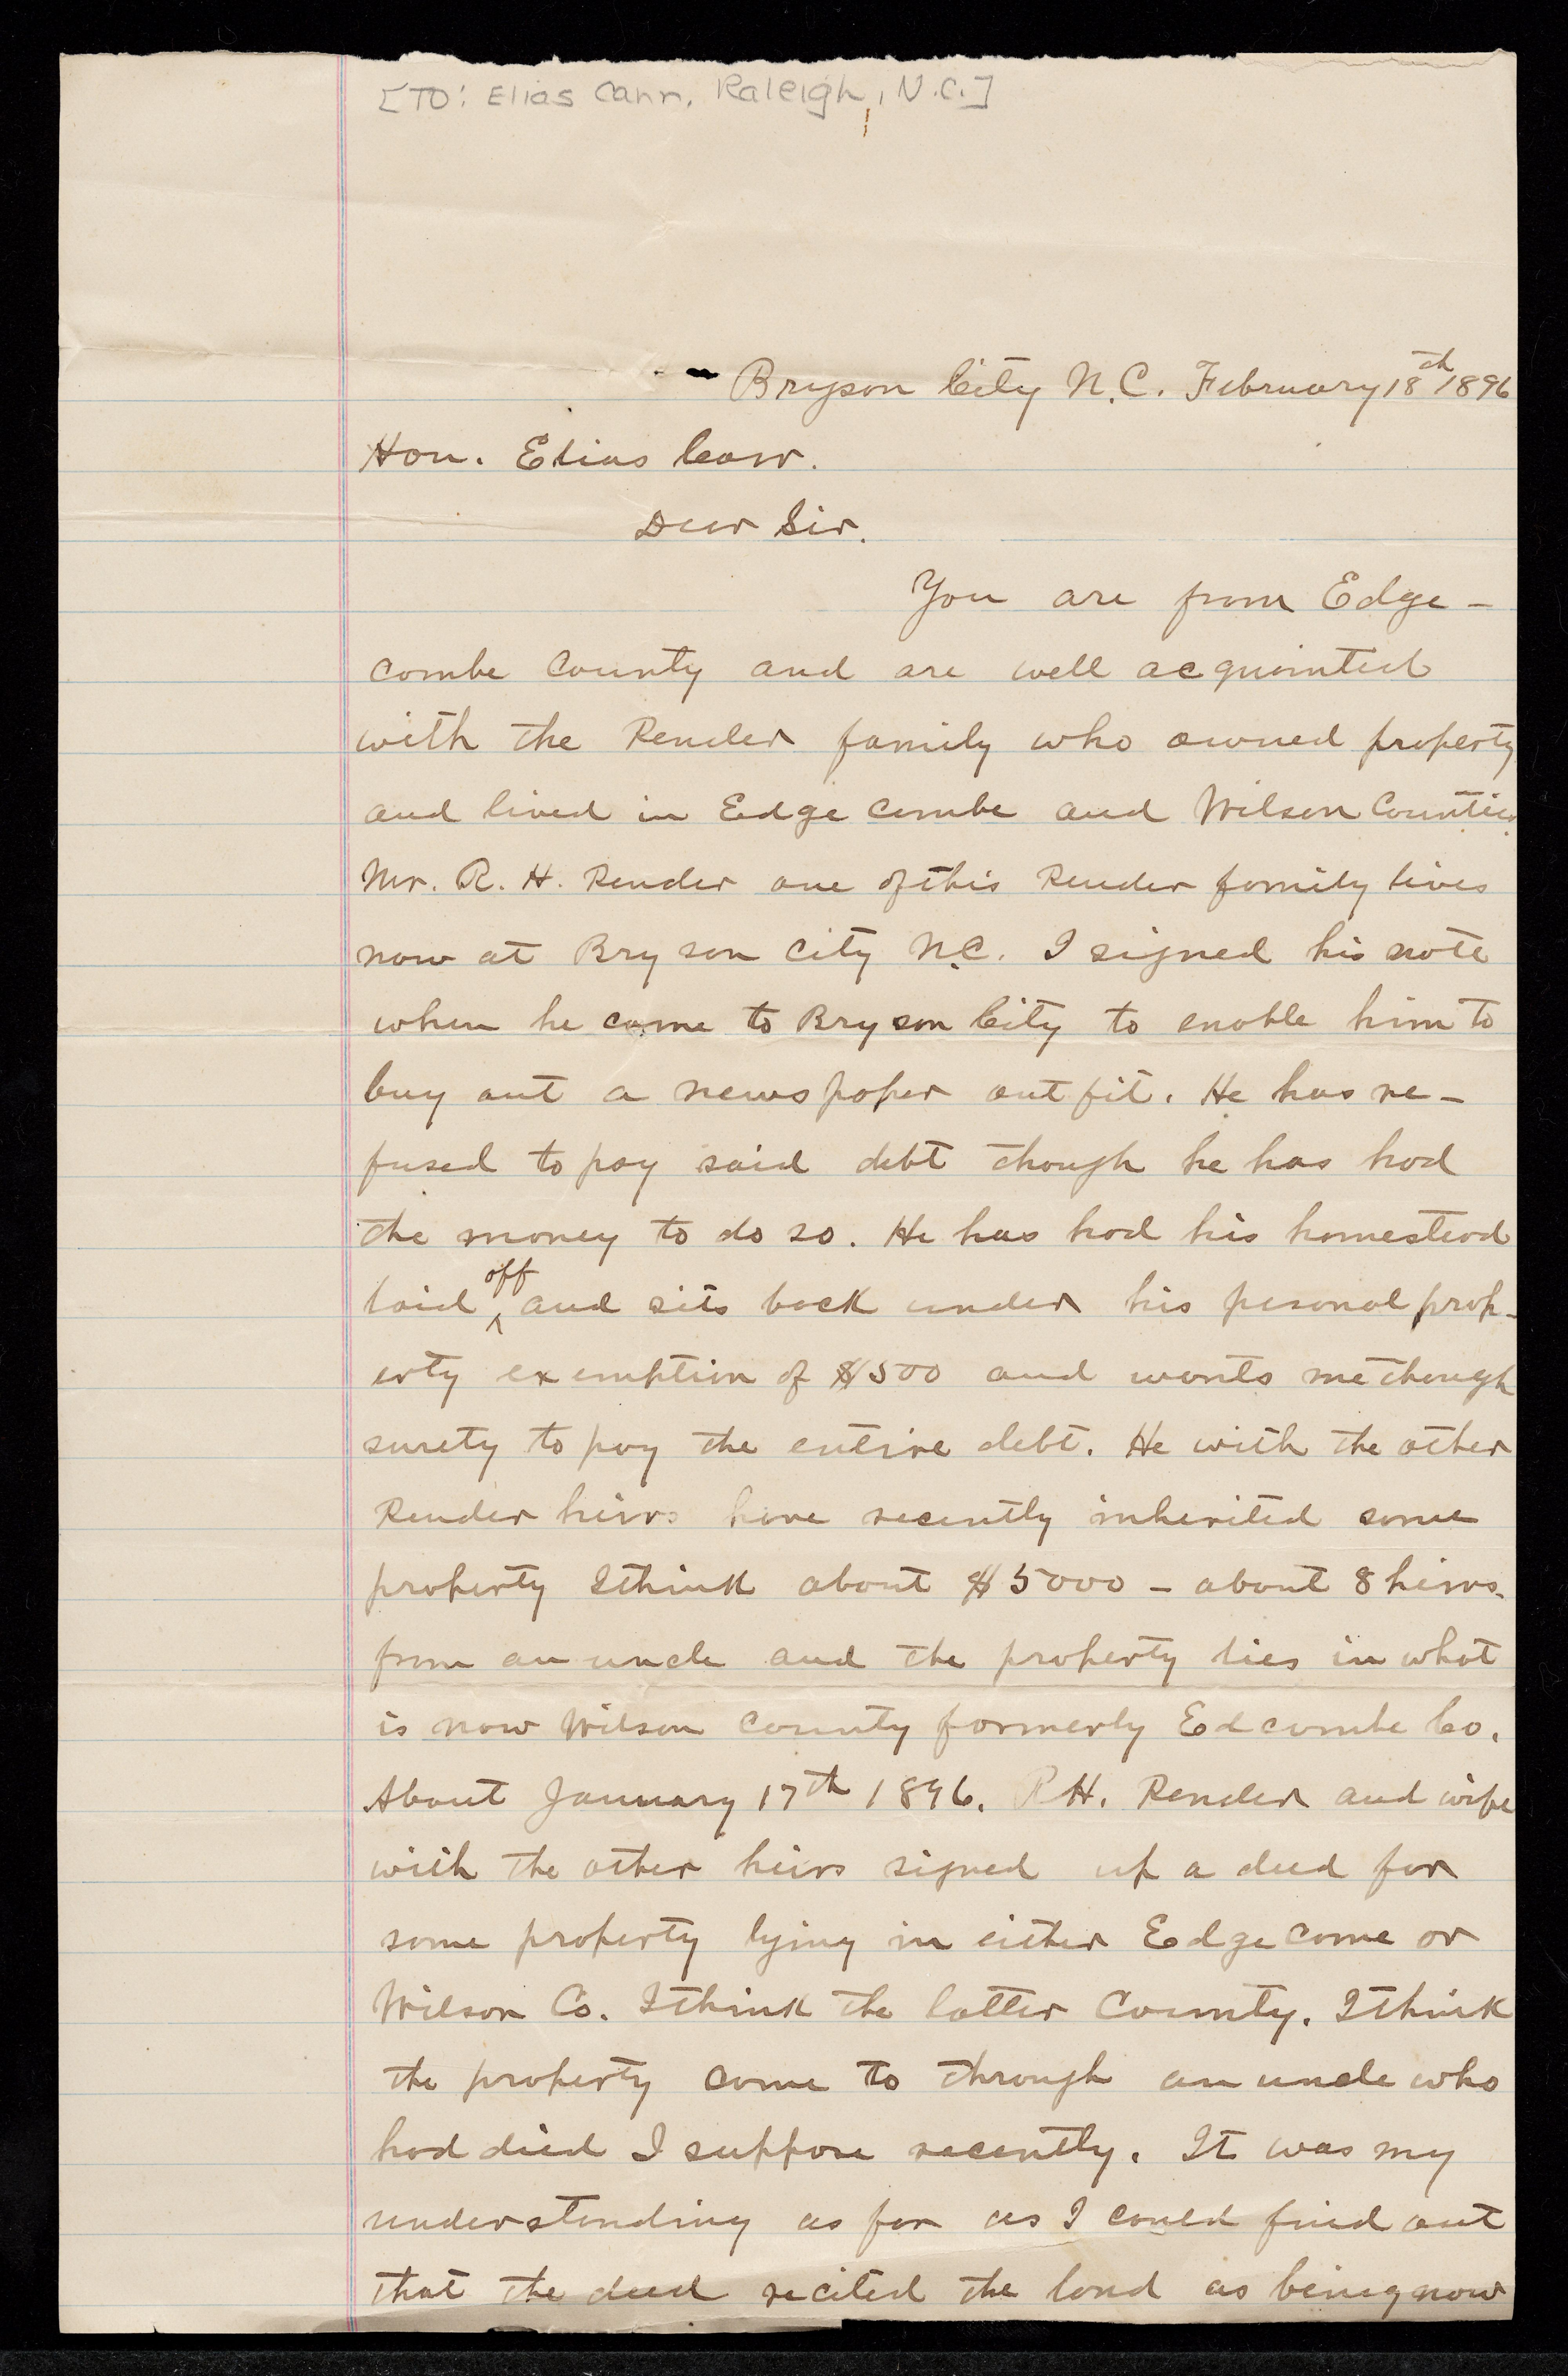 [TO: Elias Carr, Raleigh, N.C.]
Bryson City N.C. February 18th 1896
Hon. Elias Carr.
Dear Sir.
You are from Edge-
combe County and are well acquainted
with the Render family who owned property
and lived in Edge combe and Wilson Counties.
Mr. R. H. Render one of this Render family lives
now at Bryson City N.C. I signed his note
when he came to Bryson City to enable him to
buy out a news paper out fit. He has re-
fused to pay said debt though he has had
the money to do so. He has had his homestead
laid off and sits back under his pesonal prop-
erty exemption of $500 and wants me though
surety to pay the entire debt. He with the other
Render heirs have recently inherited some
property I think about $5000 - about 8 heirs-
from an uncle and the property lies in what
is now Wilson County formerly Edcombe Co.
About January 17th 1896. R.H. Render and wife
with the other heirs signed up a deed for
some property lying in either Edge come or
Wilson Co. I think the latter County. I think
the property come to through an uncle who
had died I suppose recently. It was my
understanding as far as I could find out
that the deed recited the land as being now